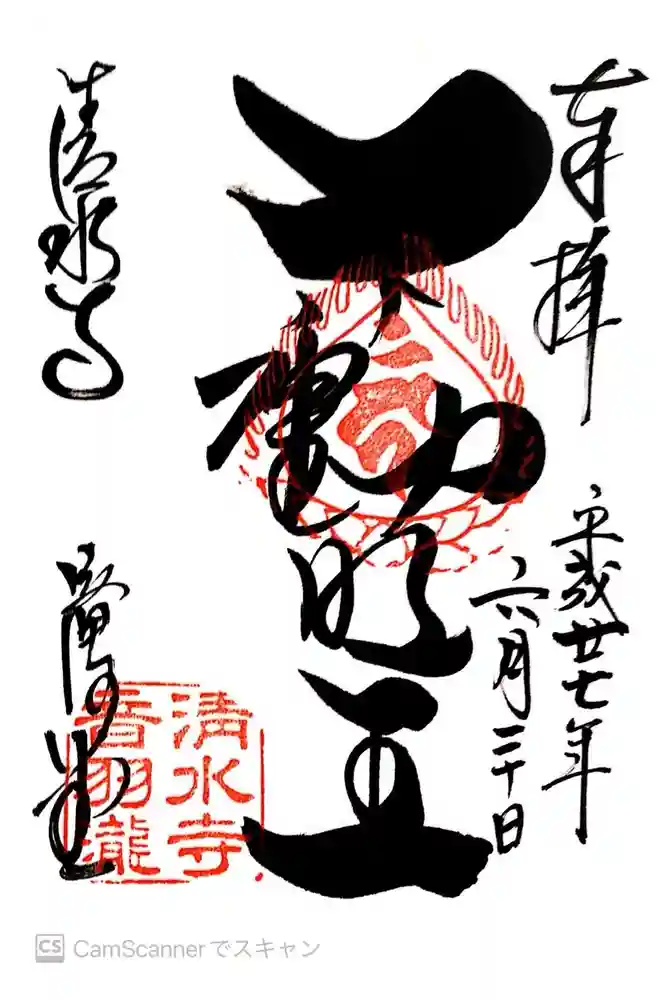 奉拝
平成廿七年
六月三十日
不動明王
清水寺
淸水寺
音羽瀧
CS CamScannerでスキャン